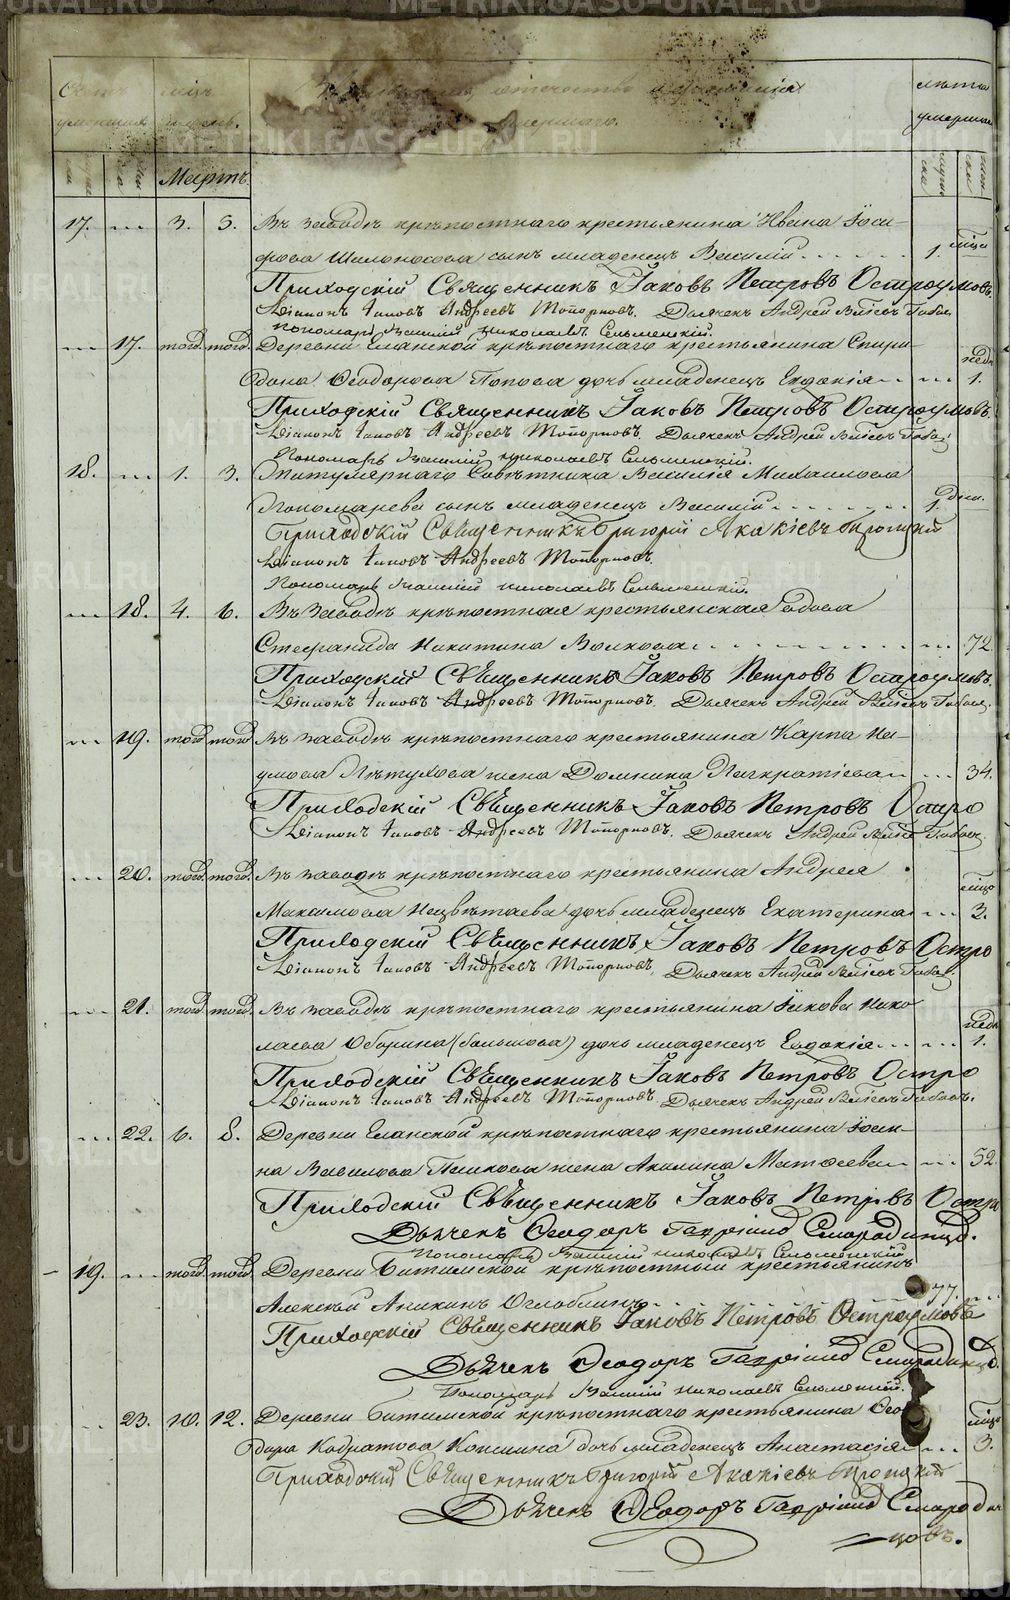 Счетъ
умершихъ
мѣсяцъ
и день.
отечество и фамилія
умершаго.
лѣта
умершаго
Мартъ
17. — 3. 3. Въ заводѣ крѣпостнаго крестьянина Ивана Іоси-
фова Шалоносова сынъ младенецъ Василій 1. мѣся
Приходскій Священникъ Іаковъ Петровъ Остроумовъ.
Діаконъ Іаковъ Андреевъ Топорковъ. Дьячекъ Андрей
Пономарь Василій Николаевъ Сельменскій.
— 17. тогож. тогож. Деревни Еланской крѣпостнаго крестьянина Спири-
дона Ѳеодорова Попова дочь младенецъ Евдокія — недѣ 1.
Приходскій Священникъ Іаковъ Петровъ Остроумовъ.
Діаконъ Іаковъ Андреевъ Топорковъ. Дьячекъ Андрей
Пономарь Василій Николаевъ Сельменскій.
18. — 1. 3. Титулярнаго Совѣтника Василія Михаилова
Пономарева сынъ младенецъ Василій 1. дня.
Приходскій Священникъ Григорій Акакіевъ Троицкій
Діаконъ Іаковъ Андреевъ Топорковъ.
Пономарь Василій Николаевъ Сельменскій.
— 18. 4. 6. Въ Заводѣ крѣпостная крестьянская вдова
Стефанида Никитина Волкова — 72
Приходскій Священникъ Іаковъ Петровъ Остроумовъ.
Діаконъ Іаковъ Андреевъ Топорковъ. Дьячекъ Андрей
— 19. тогож тогож Въ заводѣ крѣпостнаго крестьянина Карпа На-
умова Пѣтухова жена Домника Панкратіева — 34.
Приходскій Священникъ Іаковъ Петровъ Остро
Діаконъ Іаковъ Андреевъ Топорковъ. Дьячекъ Андрей
— 20. тогож. тогож. Въ заводѣ крѣпостнаго крестьянина Андрея
Максимова Нецвѣтаева дочь младенецъ Екатерина — мѣсяц 3.
Приходскій Священникъ Іаковъ Петровъ Остро
Діаконъ Іаковъ Андреевъ Топорковъ. Дьячекъ Андрей
— 21. тогож тогож. Въ заводѣ крѣпостнаго крестьянина Іакова Нико
лаева Оборина (большова) дочь младенецъ Евдокія — недѣ 1.
Приходскій Священникъ Іаковъ Петровъ Остро
Діаконъ Іаковъ Андреевъ Топорковъ. Дьячекъ Андрей
— 22. 6. 8. Деревни Еланской крѣпостнаго крестьянина Іоаки-
на Вавилова Пешкова жена Акилина Матѳеева — 52
Приходскій Священникъ Іаковъ Петровъ Остро
Дьячекъ Ѳеодоръ Гавріиловъ Смородинцовъ.
Пономарь Василій Николаевъ Сельменскій.
19. — тогож тогож. Деревни Битимской крѣпостный крестьянинъ
Алексѣй Аникинъ Оглоблинъ 77. —
Приходскій Священникъ Іаковъ Петровъ Остроумовъ
Дьячекъ Ѳеодоръ Гавріиловъ Смородинцовъ.
Пономарь Василій Николаевъ Сельменскій.
23. 10. 12. Деревни Битимской крѣпостнаго крестьянина Ѳео-
дора Кодратова Кокшина дочь младенецъ Анастасія — мѣсяц 3.
Приходскій Священникъ Григорій Акакіевъ Троицкій
Дьячекъ Ѳеодоръ Гавріиловъ Смородин
цовъ.
METRIKI.GASO-URAL.RU